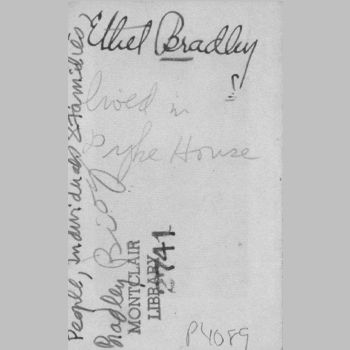 Ethel Bradley
lived in
Pyke House
People, Individuals & Families
Bradley Biog
MONTCLAIR
LIBRARY
P4089